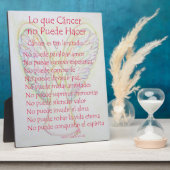 Lo que Cáncer
no Puede Hacer
Cáncer es tan limitado...
No puede paralizar amor
No puede romper esperanza
No puede corroer fe
No puede destruir paz
No puede matar amistades
No puede suprimir memorias
No puede silenciar valor
No puede invadir el alma
No puede robar la vida eterna
No puede conquistar el espíritu